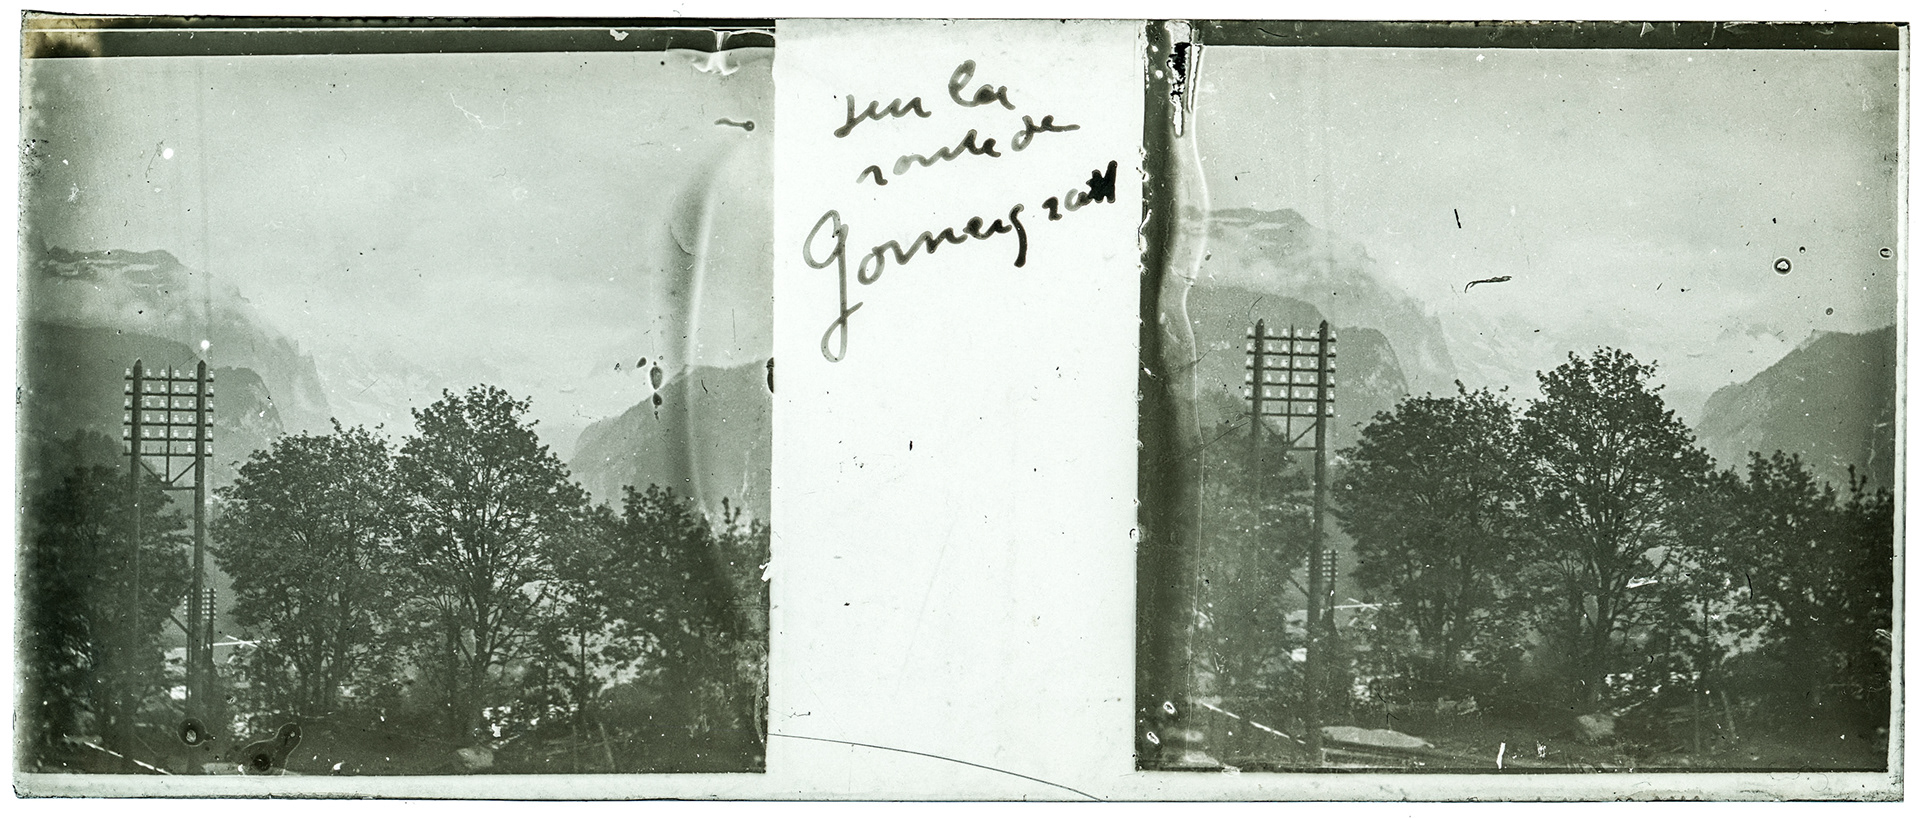 sur la
route de
Gornergratt